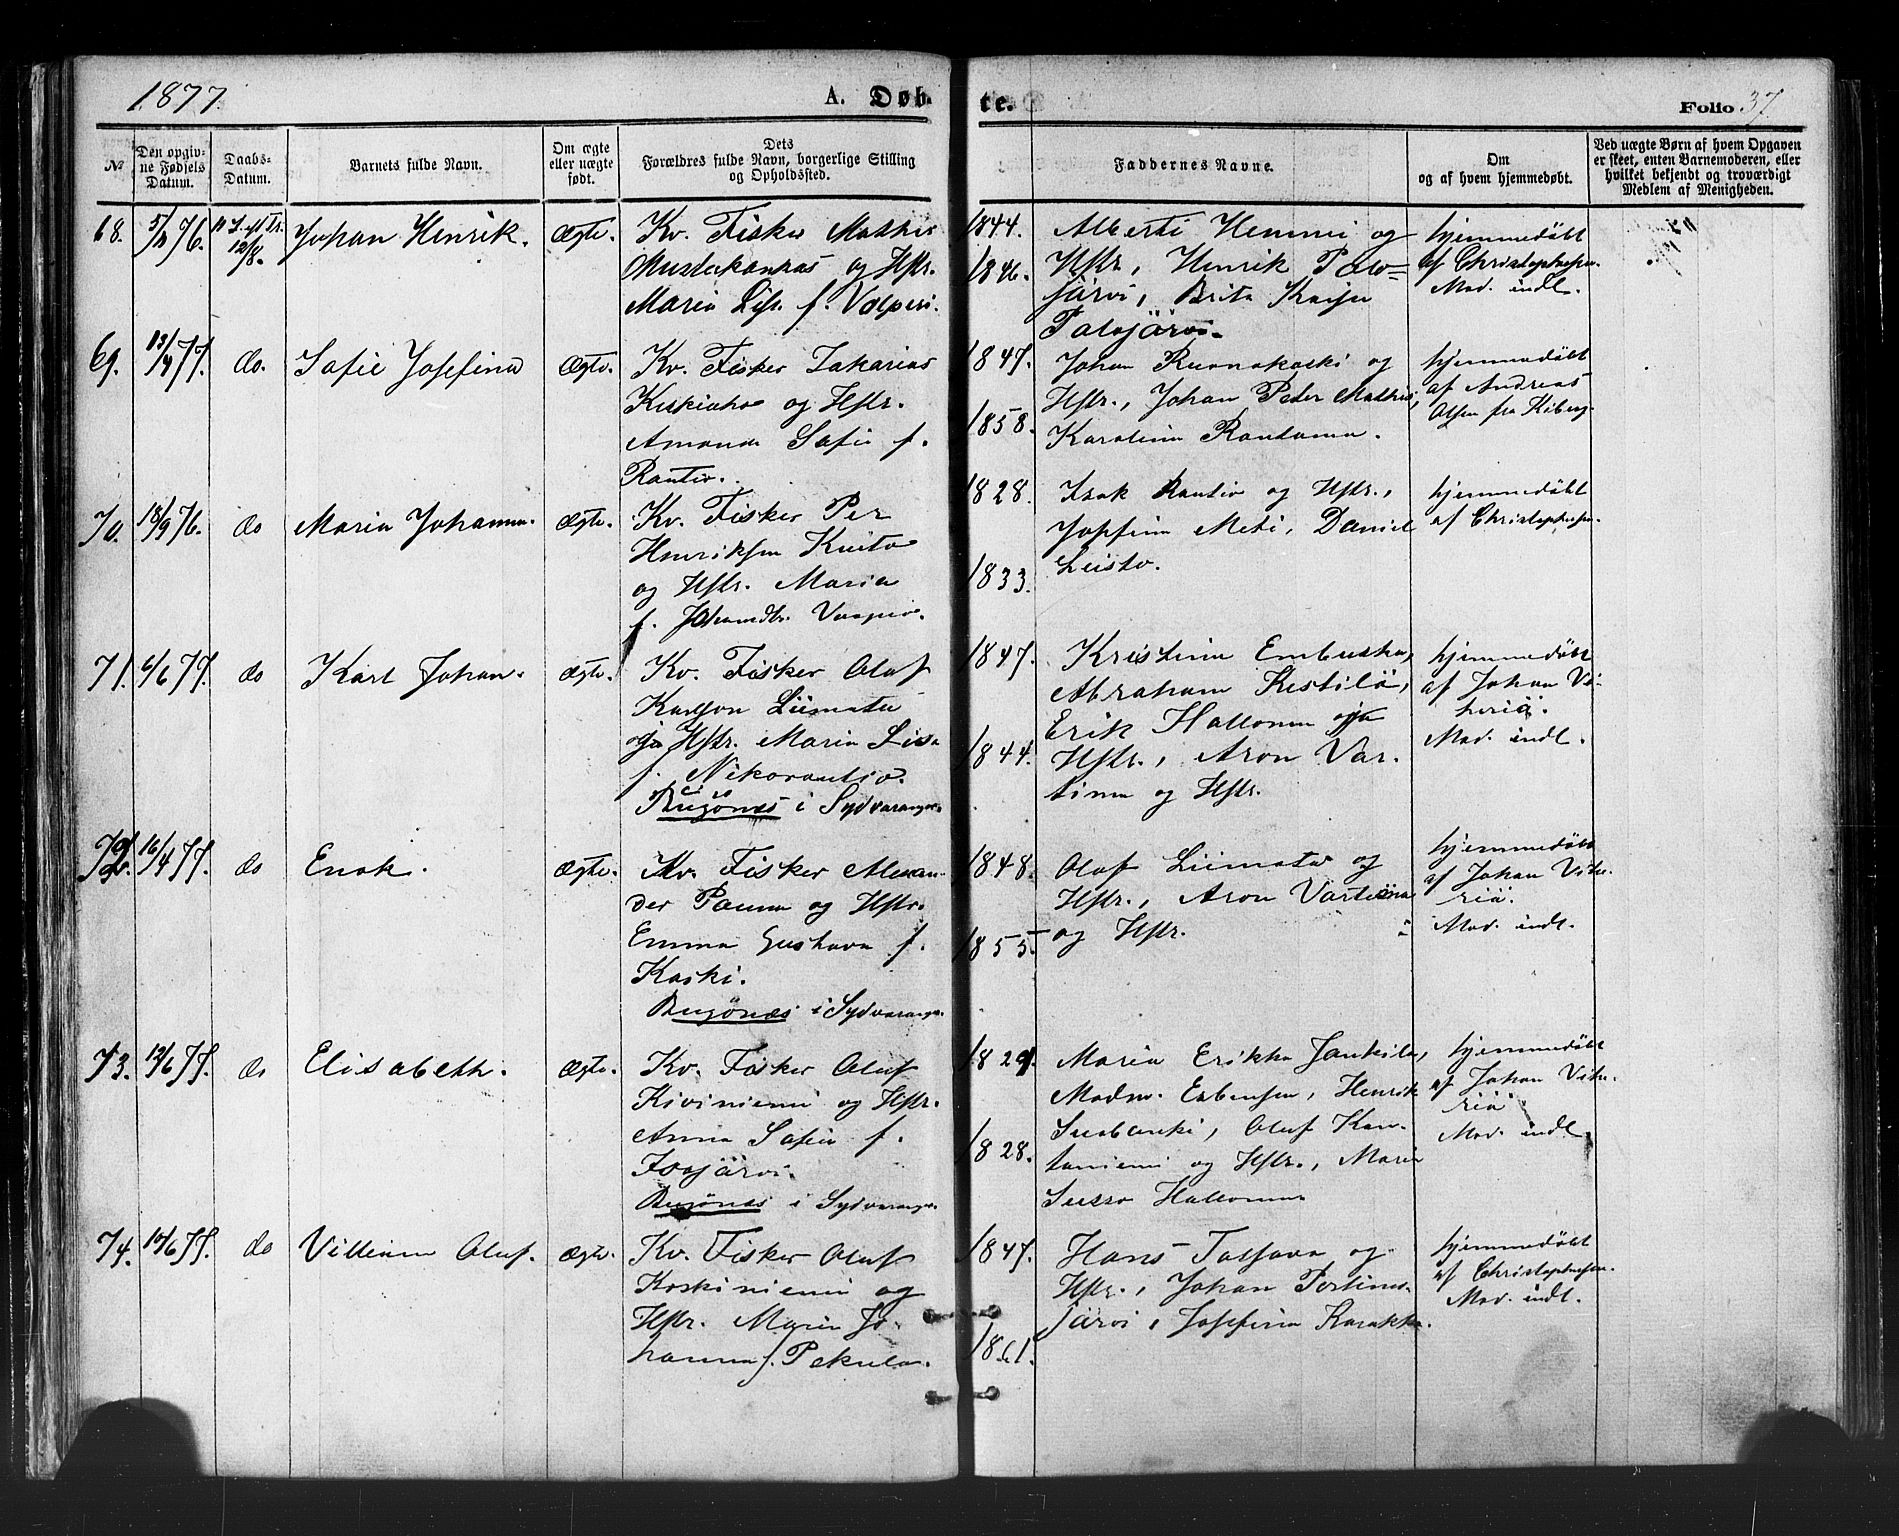 1877.
A. Døb-
te.
Folio 37
№
Den opgiv-
ne Fødsels
Datum.
Daabs-
Datum.
Barnets fulde Navn.
Om ægte
eller uægte
født.
Dets
Forældres fulde Navn, borgerlige Stilling
og Opholdssted.
Faddernes Navne.
Om
og af hvem hjemmedøbt.
Ved uægte Børn af hvem Opgaven
er skeet, enten Barnemoderen, eller
hvilket bekjendt og troværdigt
Medlem af Menigheden.
68.
76.
12/8.
Johan Henrik.
Ægte.
Kv. Fisker Mathis
og Hstr.
Maria Lis. f. Volperi.
1844.
1846.
Alberti Hemmi og
Hstr., Henrik Palo=
järvi, Brita Kaisa
Palojärvi.
hjemmedøbt
af Christophersen.
Mod. indl.
69.
13/4 77.
do.
Sofie Josefina
Ægte.
Kv. Fisker Zakarias
Keskiaho og Hstr.
Amanda Sofie f.
Rantio.
1847.
1858.
Johan Ruonakoski og
Hstr., Johan Peder Mathis,
Karolina Rautama.
hjemmedøbt
af Andreas
Olsen fra Kiberg.
70.
18/9 76.
do
Maria Johanna.
Ægte.
Kv. Fisker Per
Henriksen Kuito
og Hstr. Maria
f. Johansdtr.
1828.
1833.
Isak Rantio og Hstr.,
Josefina Meti, Daniel
Leisto.
hjemmedøbt
af Christophersen.
71.
6/6 77.
do
Karl Johan.
Ægte.
Kv. Fisker Olaf
Karlson Liimata
og Hstr. Maria Lisa
f. Nikorantio.
Bugönes i Sydvaranger.
1847.
1844.
Kristina Embuska,
Abraham Kestilä,
Erik Hallonen og
Hstr., Aron Var-
tinen og Hstr.
hjemmedøbt
af Johan Vi-
heriä.
Mod. indl.
72.
16/4 77.
do
Enok.
Ægte.
Kv. Fisker Alexan-
der Pauna og Hstr.
Emma Gustava f.
Koski.
Bugönes i Sydvaranger.
1848.
1855.
Olaf Liimata og
Hstr., Aron Vartiöinen
og Hstr.
hjemmedøbt
af Johan Vihe-
riä.
Mod. indl.
73.
12/6 77.
do
Elisabeth.
Ægte.
Kv. Fisker Oluf
Kiviniemi og Hstr.
Anna Sofia f.
Isojärvi.
Bugönes i Sydvaranger.
1829.
1828.
Maria Erikka Jankila,
Madm. Esbensen, Henrik
Oluf Kan-
taniemi og Hstr., Maria
Susso Hallonen
hjemmedøbt
af Johan Vihe-
riä.
Mod. indl.
74.
12/6 77.
do
Villiam Oluf.
Ægte.
Kv. Fisker Oluf
Koskiniemi og
Hstr. Maria Jo-
hanna f. Pekula.
1847.
1861.
Hans og
Hstr., Johan Portimo-
järvi, Josefina
hjemmedøbt
af Christophersen.
Mod. indl.